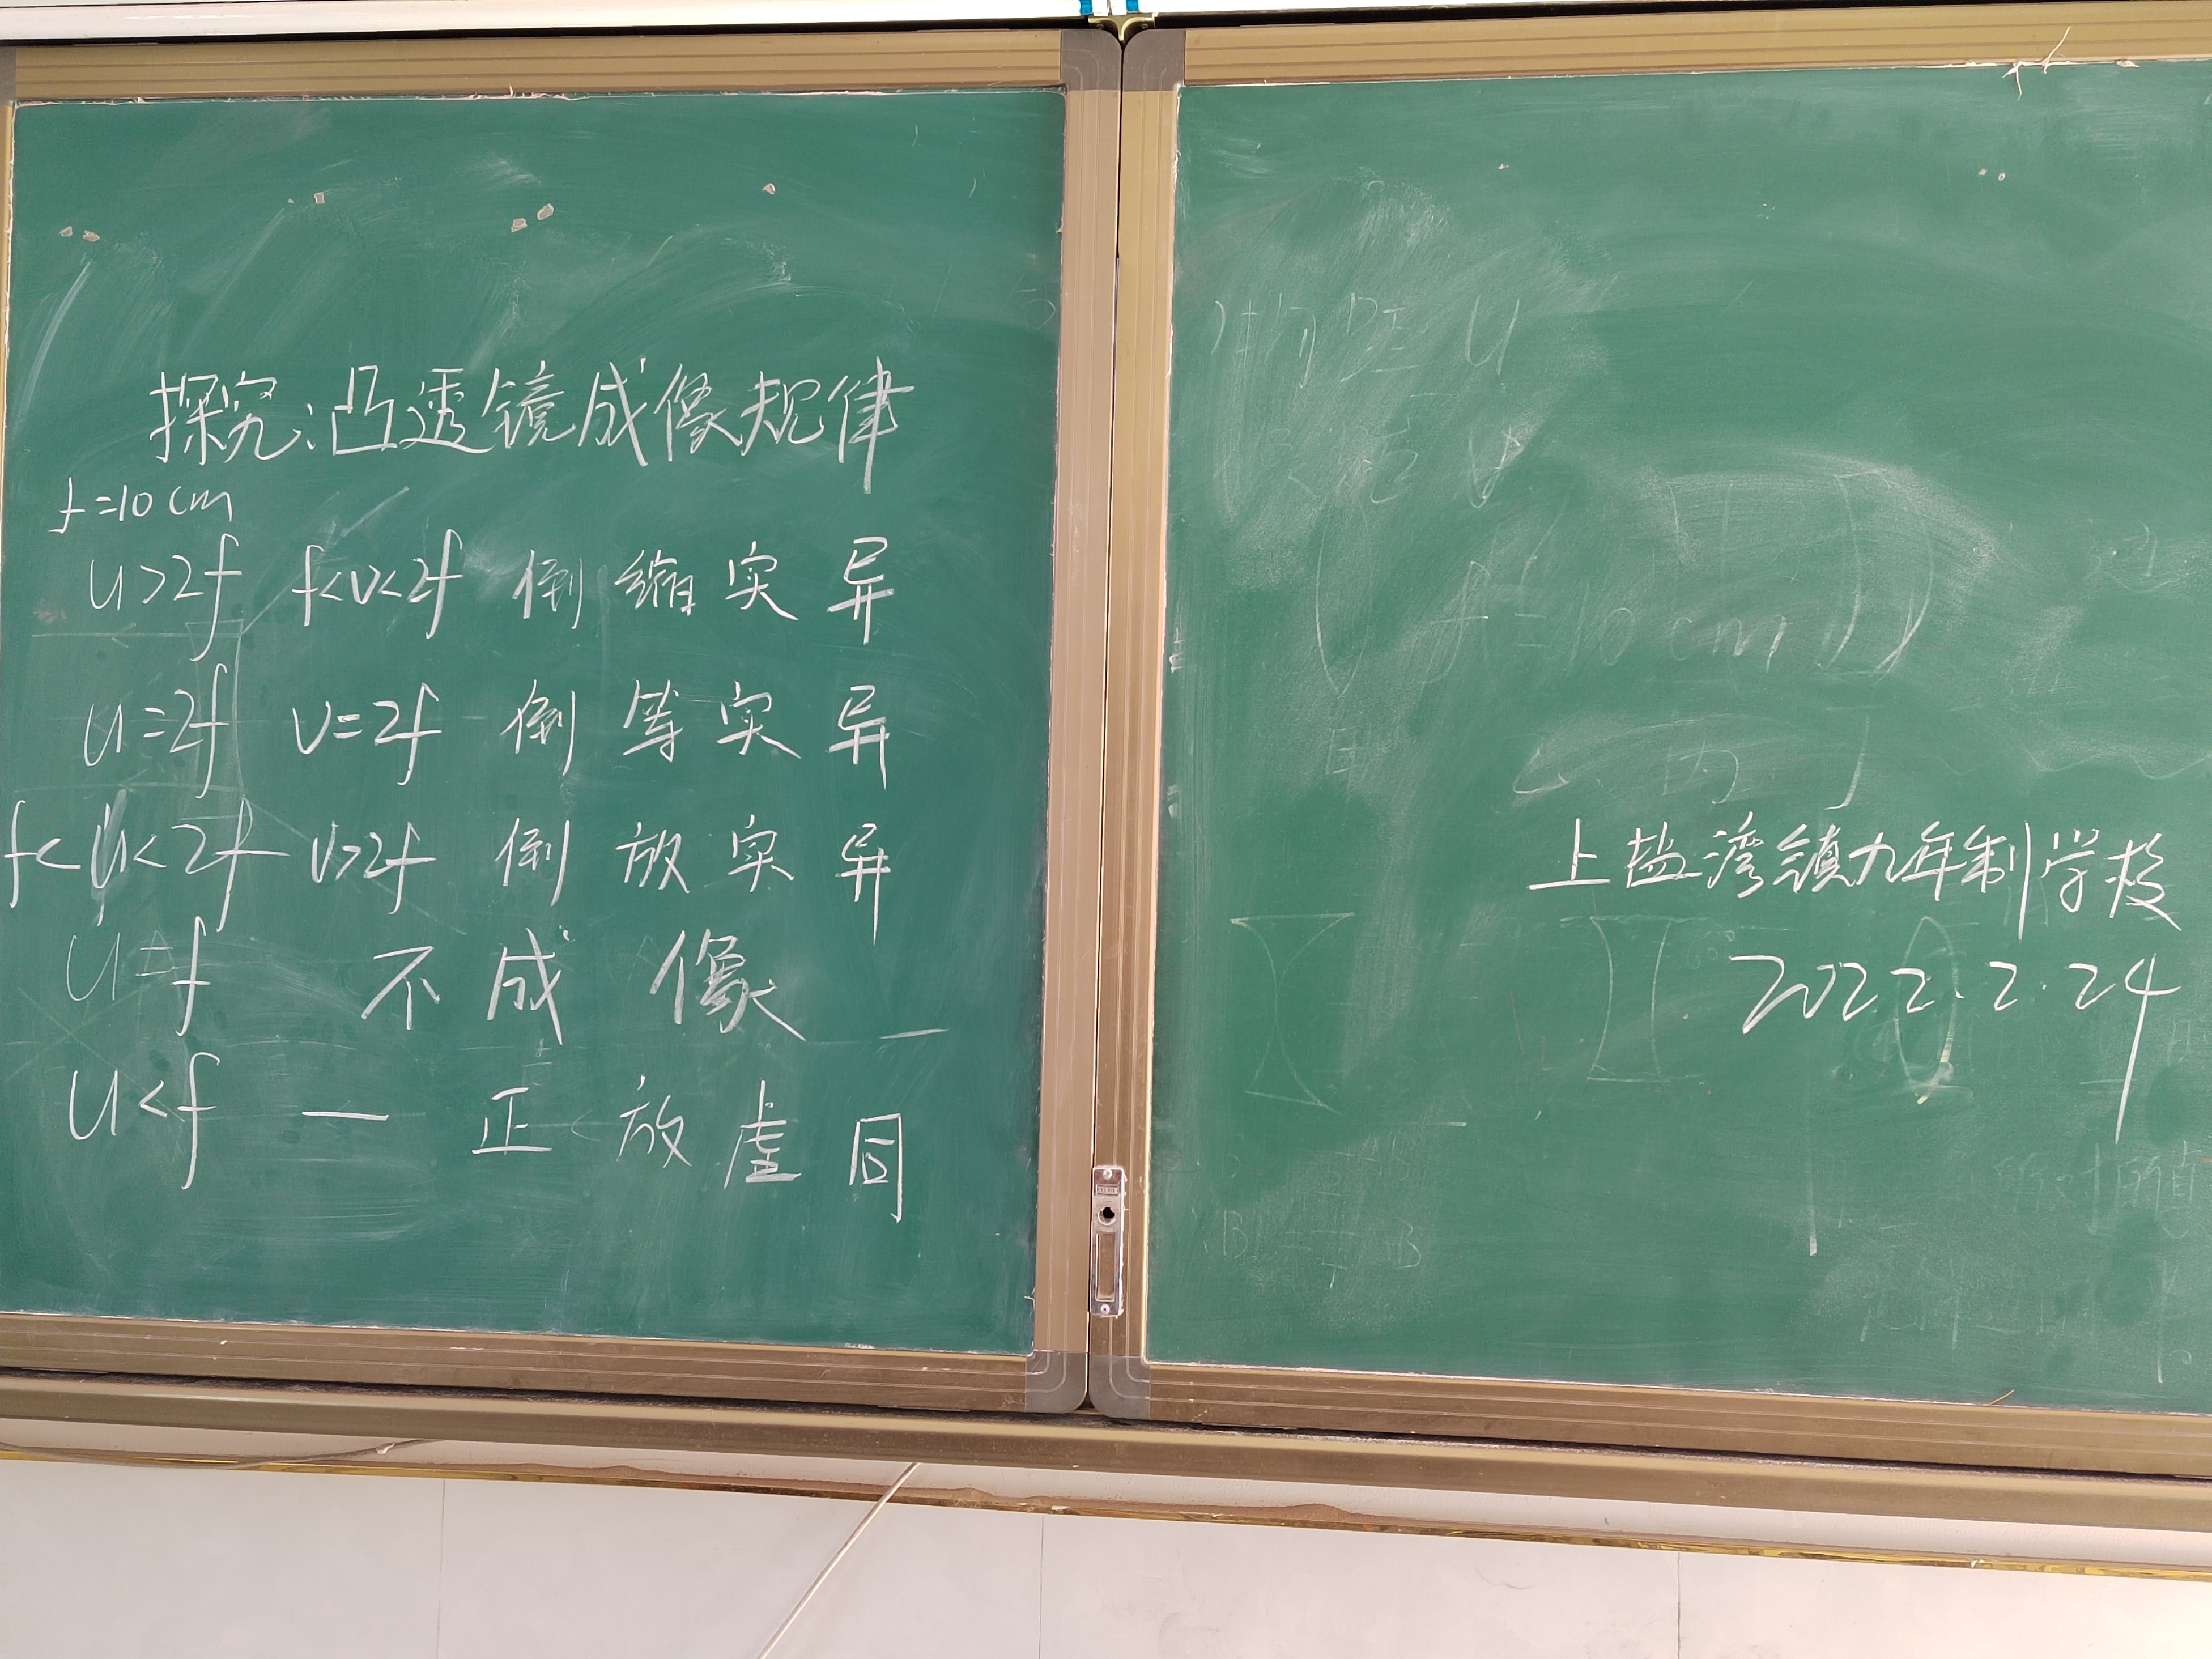 探究:凸透镜成像规律
f=10cm
u>2f f<v<2f 倒 缩 实 异
u=2f v=2f 倒 等 实 异
f<u<2f v>2f 倒 放 实 异
u=f 不 成 像
u<f — 正 放 虚 同
f=10cm
上盐湾镇九年制学校
2022.2.24